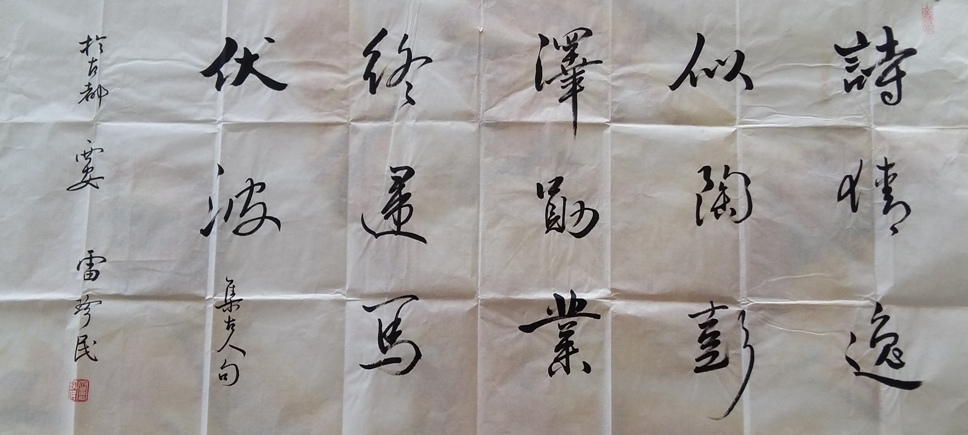 詩情逸
似陶彭
澤勛業
終還馬
伏波 集古人句
於古都 西安 雷珍民